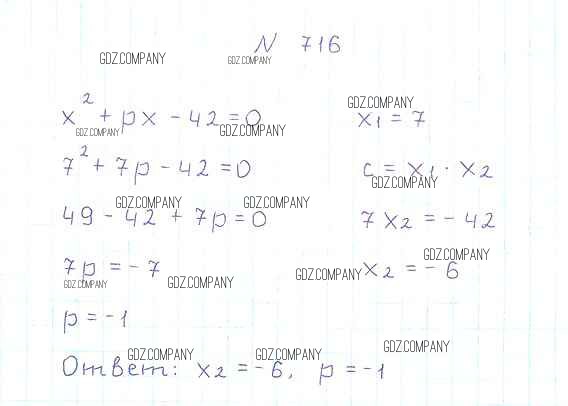 N 716
GDZ.COMPANY GDZ.COMPANY
x² + px - 42 = 0 x1 = 7
GDZ.COMPANY GDZ.COMPANY GDZ.COMPANY
7² + 7p - 42 = 0 c = x1 · x2
GDZ.COMPANY
49 - 42 + 7p = 0 7x2 = - 42
GDZ.COMPANY GDZ.COMPANY
7p = - 7 x2 = - 6
GDZ.COMPANY GDZ.COMPANY GDZ.COMPANY GDZ.COMPANY
p = -1
Ответ: x2 = - 6, p = -1
GDZ.COMPANY GDZ.COMPANY GDZ.COMPANY